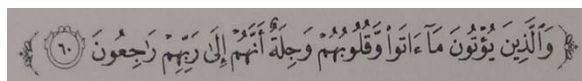 ﴿وَٱلَّذِينَ يُؤۡتُونَ مَآ ءَاتَواْ وَّقُلُوبُهُمۡ وَجِلَةٌ أَنَّهُمۡ إِلَىٰ رَبِّهِمۡ رَٰجِعُونَ ٦٠﴾